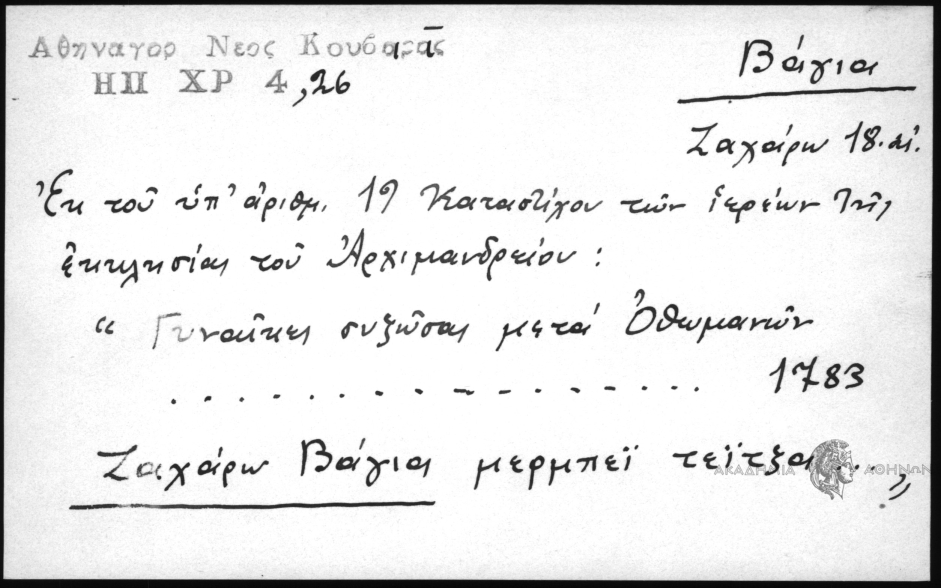 Αθηναγορ Νεος Κουβαρας ια
ΗΠ ΧΡ 4, 26
Βάγια
Ζαχάρω 18. αἰ.
Ἐκ τοῦ ὑπ' ἀριθμ. 19 Καταστίχου τῶν ἱερέων τῆς
ἐκκλησίας τοῦ Ἀρχιμανδρείου:
“ Γυναῖκες συζῶσαι μετά Ὀθωμανῶν
. . . . . . . . . . . . . . . . . 1783
Ζαχάρω Βάγια μερμπεϊ τεϊτζα... ”
ΑΚΑΔΗΜΙΑ ΑΘΗΝΩΝ